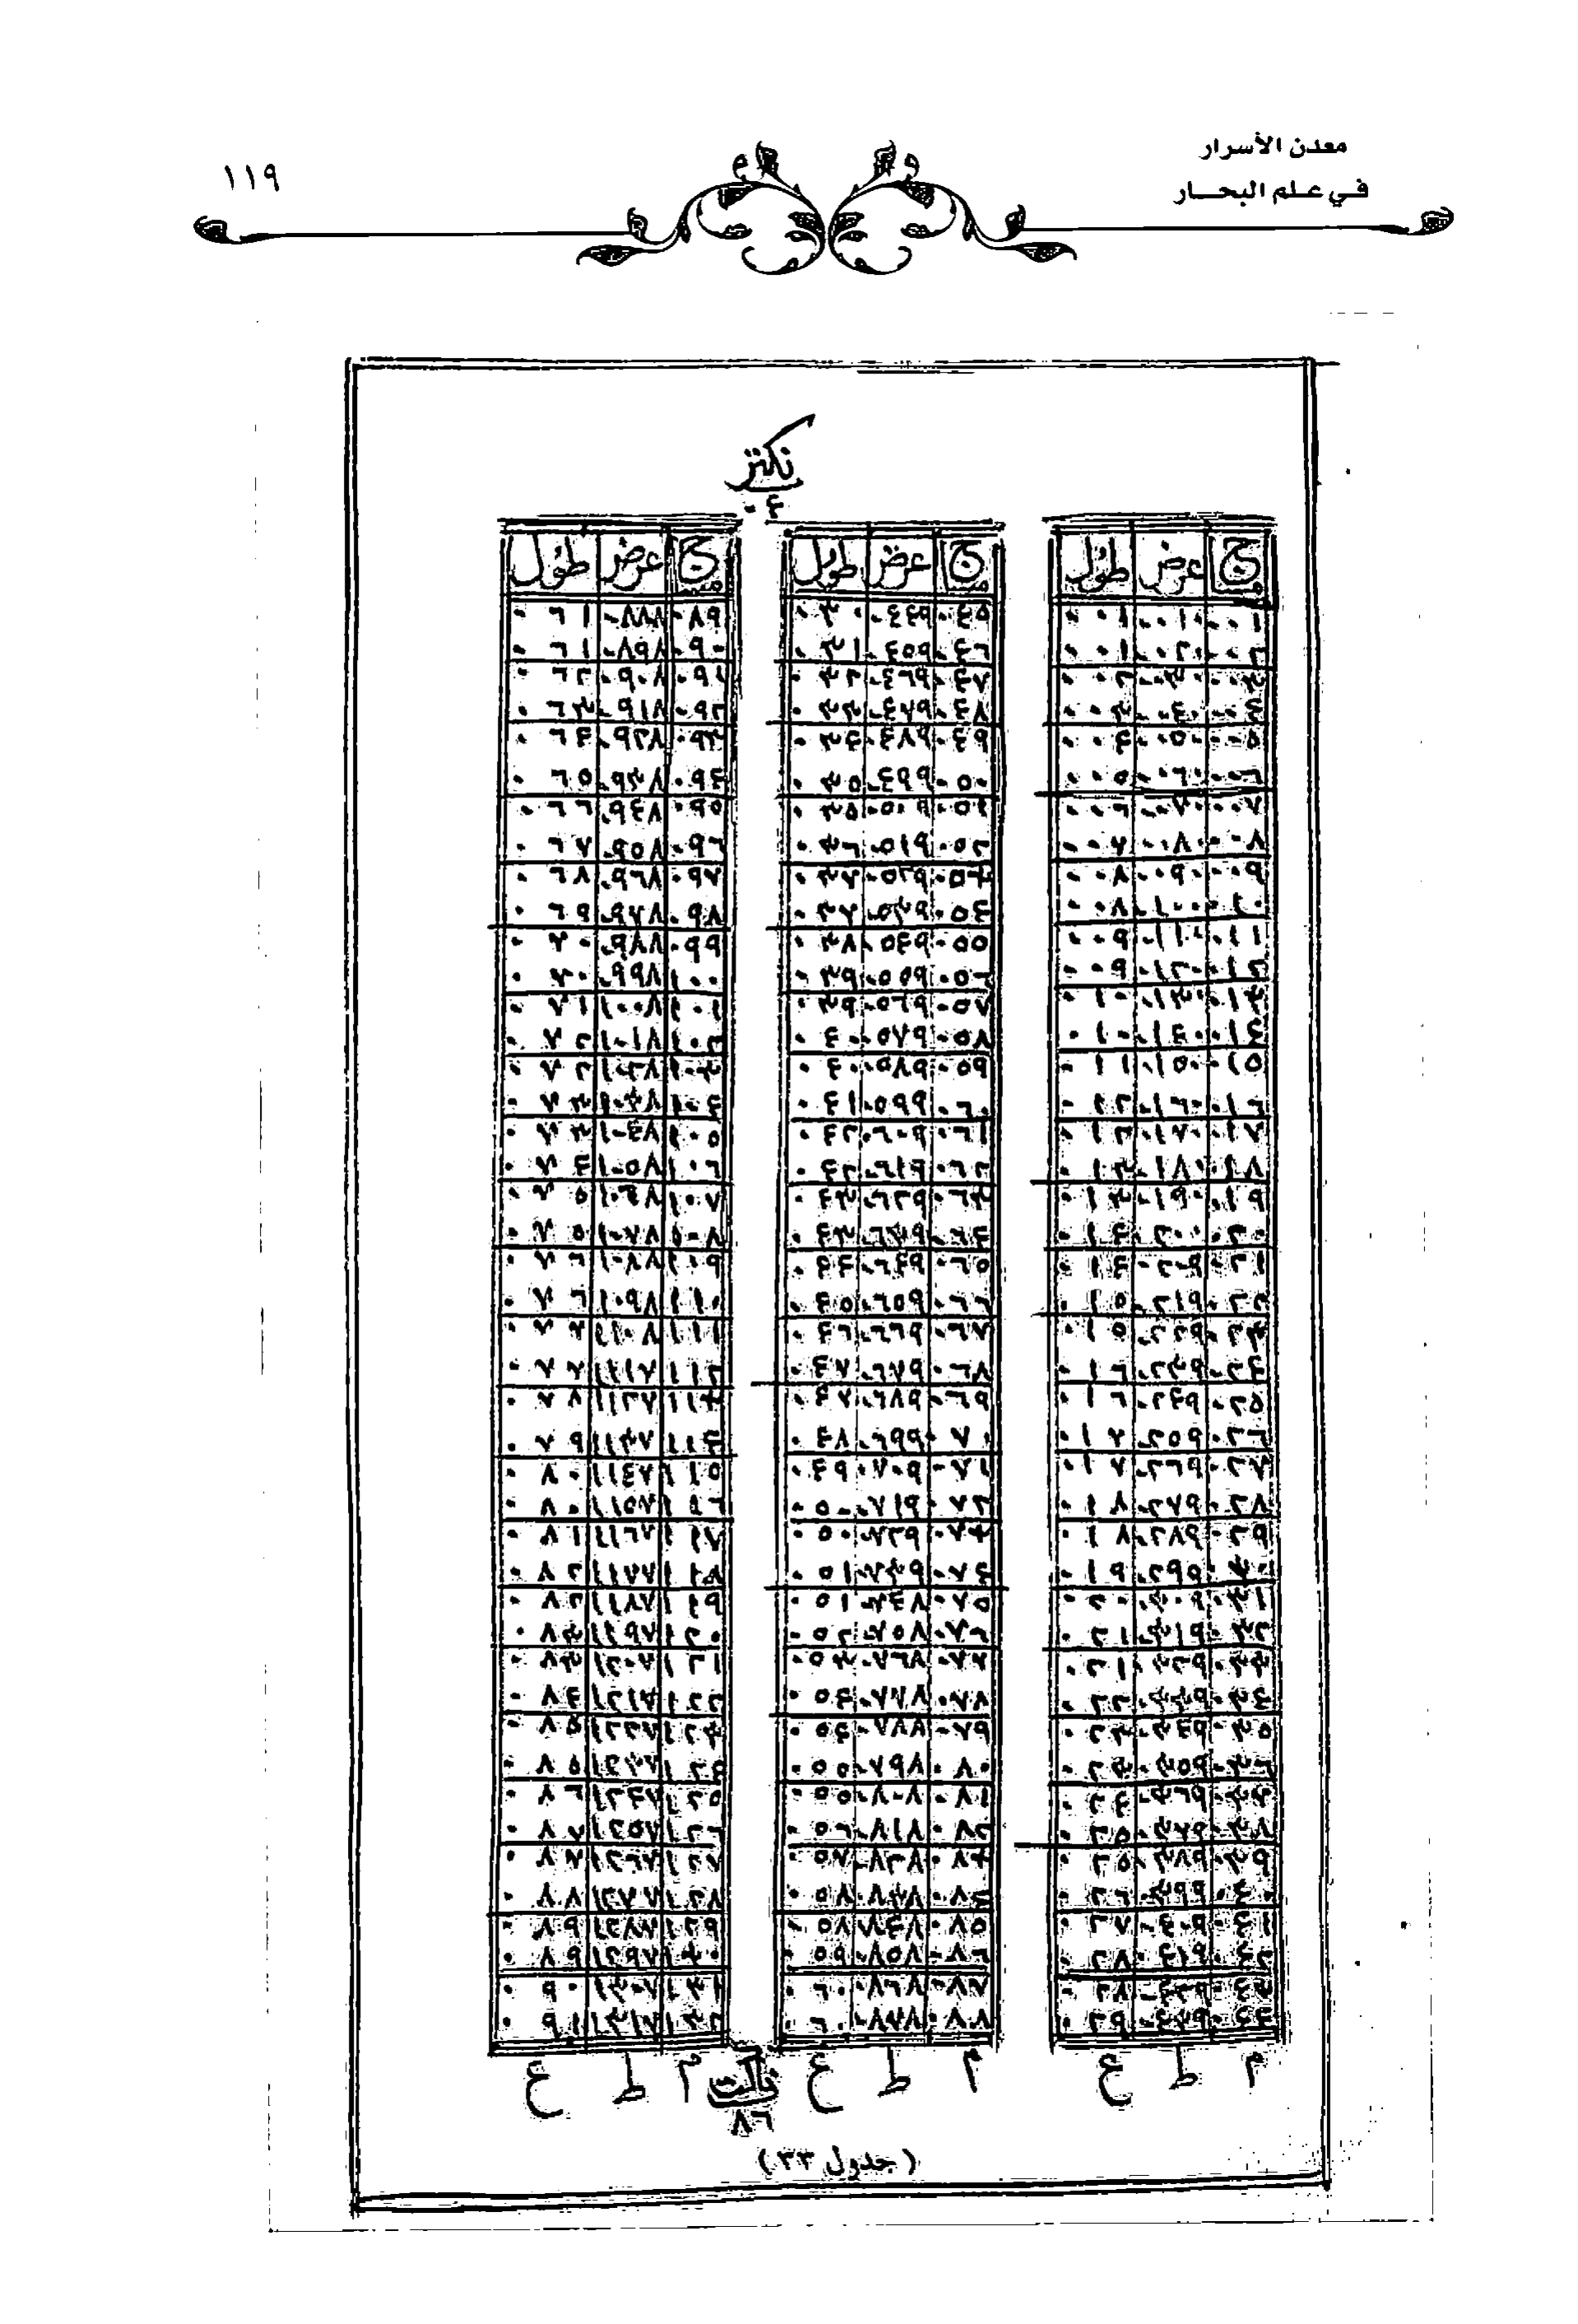 معدن الأسرار
في علم البحـــار
١١٩
نكتر
٠٤
ج عرض طول
٠٠١ ٠١٠ ٠٠١
٠٠٢ ٠٢٠ ٠٠١
٠٠٣ ٠٣٠ ٠٠٢
٠٠٤ ٠٤٠ ٠٠٣
٠٠٥ ٠٥٠ ٠٠٤
٠٠٦ ٠٦٠ ٠٠٥
٠٠٧ ٠٧٠ ٠٠٦
٠٠٨ ٠٨٠ ٠٠٧
٠٠٩ ٠٩٠ ٠٠٨
٠١٠ ١٠٠ ٠٠٨
٠١١ ١١٠ ٠٠٩
٠١٢ ١٢٠ ٠٠٩
٠١٣ ١٣٠ ٠١٠
٠١٤ ١٤٠ ٠١٠
٠١٥ ١٥٠ ٠١١
٠١٦ ١٦٠ ٠١٢
٠١٧ ١٧٠ ٠١٢
٠١٨ ١٨٠ ٠١٣
٠١٩ ١٩٠ ٠١٣
٠٢٠ ٢٠٠ ٠١٤
٠٢١ ٢٠٩ ٠١٤
٠٢٢ ٢١٩ ٠١٥
٠٢٣ ٢٢٩ ٠١٥
٠٢٤ ٢٣٩ ٠١٦
٠٢٥ ٢٤٩ ٠١٦
٠٢٦ ٢٥٩ ٠١٧
٠٢٧ ٢٦٩ ٠١٧
٠٢٨ ٢٧٩ ٠١٨
٠٢٩ ٢٨٩ ٠١٨
٠٣٠ ٠١٩
٠٣١ ٣٠٩ ٠٢٠
٠٣٢ ٣١٩ ٠٢١
٠٣٣ ٣٢٩ ٠٢١
٠٣٤ ٣٣٩ ٠٢٢
٠٣٥ ٣٤٩ ٠٢٣
٠٣٦ ٣٥٩ ٠٢٣
٠٣٧ ٣٦٩ ٠٢٤
٠٣٨ ٣٧٩ ٠٢٥
٠٣٩ ٣٨٩ ٠٢٥
٠٤٠ ٣٩٩ ٠٢٦
٠٤١ ٤٠٩ ٠٢٧
٠٤٢ ٤١٩ ٠٢٨
٠٤٣ ٤٢٩ ٠٢٨
٠٤٤ ٤٣٩ ٠٢٩
م ط ع
ج عرض طول
٠٤٥ ٤٤٩ ٠٣٠
٠٤٦ ٤٥٩ ٠٣١
٠٤٧ ٤٦٩ ٠٣٢
٠٤٨ ٤٧٩ ٠٣٣
٠٤٩ ٤٨٩ ٠٣٤
٠٥٠ ٤٩٩ ٠٣٥
٠٥١ ٥٠٩ ٠٣٥
٠٥٢ ٥١٩ ٠٣٦
٠٥٣ ٥٢٩ ٠٣٧
٠٥٤ ٥٣٩ ٠٣٧
٠٥٥ ٥٤٩ ٠٣٨
٠٥٦ ٥٥٩ ٠٣٩
٠٥٧ ٥٦٩ ٠٣٩
٠٥٨ ٥٧٩ ٠٤٠
٠٥٩ ٥٨٩ ٠٤٠
٠٦٠ ٥٩٩ ٠٤١
٠٦١ ٦٠٩ ٠٤٢
٠٦٢ ٦١٩ ٠٤٢
٠٦٣ ٦٢٩ ٠٤٣
٠٦٤ ٦٣٩ ٠٤٣
٠٦٥ ٦٤٩ ٠٤٤
٠٦٦ ٦٥٩ ٠٤٥
٠٦٧ ٦٦٩ ٠٤٦
٠٦٨ ٦٧٩ ٠٤٧
٠٦٩ ٦٨٩ ٠٤٧
٠٧٠ ٦٩٩ ٠٤٨
٠٧١ ٧٠٩ ٠٤٩
٠٧٢ ٧١٩ ٠٥٠
٠٧٣ ٧٢٩ ٠٥٠
٠٧٤ ٧٣٩ ٠٥١
٠٧٥ ٧٤٨ ٠٥١
٠٧٦ ٧٥٨ ٠٥٢
٠٧٧ ٧٦٨ ٠٥٣
٠٧٨ ٧٧٨ ٠٥٤
٠٧٩ ٧٨٨ ٠٥٤
٠٨٠ ٧٩٨ ٠٥٥
٠٨١ ٨٠٨ ٠٥٥
٠٨٢ ٨١٨ ٠٥٦
٠٨٣ ٨٢٨ ٠٥٧
٠٨٤ ٨٣٨ ٠٥٨
٠٨٥ ٨٤٨ ٠٥٨
٠٨٦ ٨٥٨ ٠٥٩
٠٨٧ ٨٦٨ ٠٦٠
٠٨٨ ٨٧٨ ٠٦٠
م ط ع
ج عرض طول
٠٨٩ ٨٨٨ ٠٦١
٠٩٠ ٨٩٨ ٠٦١
٠٩١ ٩٠٨ ٠٦٢
٠٩٢ ٩١٨ ٠٦٣
٠٩٣ ٩٢٨ ٠٦٤
٠٩٤ ٩٣٨ ٠٦٥
٠٩٥ ٩٤٨ ٠٦٦
٠٩٦ ٩٥٨ ٠٦٧
٠٩٧ ٩٦٨ ٠٦٨
٠٩٨ ٩٧٨ ٠٦٩
٠٩٩ ٩٨٨ ٠٧٠
١٠٠ ٩٩٨ ٠٧٠
١٠١ ١٠٠٨ ٠٧١
١٠٢ ١٠١٨ ٠٧٢
١٠٣ ١٠٢٨ ٠٧٢
١٠٤ ١٠٣٨ ٠٧٣
١٠٥ ١٠٤٨ ٠٧٣
١٠٦ ١٠٥٨ ٠٧٤
١٠٧ ١٠٦٨ ٠٧٥
١٠٨ ١٠٧٨ ٠٧٥
١٠٩ ١٠٨٨ ٠٧٦
١١٠ ١٠٩٨ ٠٧٦
١١١ ١١٠٨ ٠٧٧
١١٢ ١١١٧ ٠٧٧
١١٣ ١١٢٧ ٠٧٨
١١٤ ١١٣٧ ٠٧٩
١١٥ ١١٤٧ ٠٨٠
١١٦ ١١٥٧ ٠٨٠
١١٧ ١١٦٧ ٠٨١
١١٨ ١١٧٧ ٠٨٢
١١٩ ١١٨٧ ٠٨٢
١٢٠ ١١٩٧ ٠٨٣
١٢١ ١٢٠٧ ٠٨٣
١٢٢ ١٢١٧ ٠٨٤
١٢٣ ١٢٢٧ ٠٨٥
١٢٤ ١٢٣٧ ٠٨٥
١٢٥ ١٢٤٧ ٠٨٦
١٢٦ ١٢٥٧ ٠٨٧
١٢٧ ١٢٦٧ ٠٨٧
١٢٨ ١٢٧٧ ٠٨٨
١٢٩ ١٢٨٧ ٠٨٩
١٣٠ ١٢٩٧ ٠٨٩
١٣١ ١٣٠٧ ٠٩٠
١٣٢ ١٣١٧ ٠٩١
م ط ع
٨٦
(جدول ٣٣)